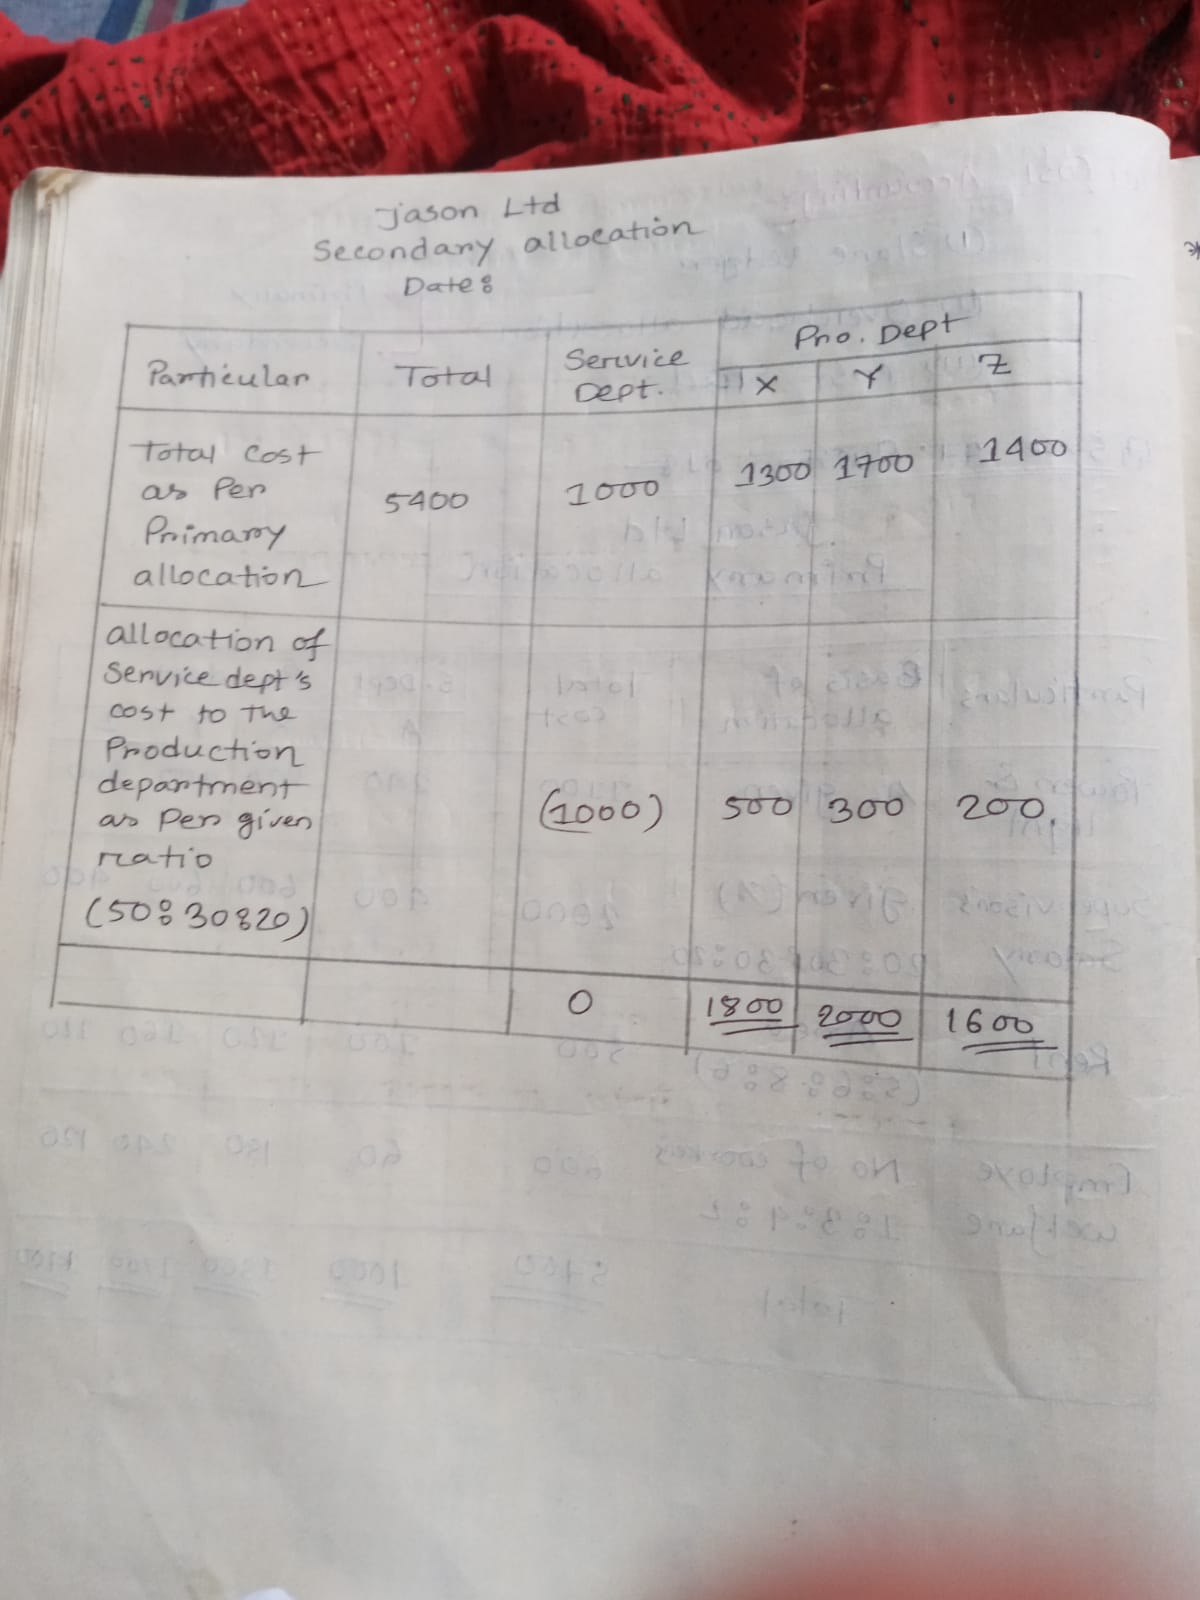 Jason Ltd
Secondary allocation
Date:
Particular Total Service Dept. Pro. Dept
X Y Z
Total cost
as Per
Primary
allocation
5400 1000 1300 1700 1400
allocation of
Service dept's
cost to the
Production
department
as Per given
ratio
(50:30:20)
(1000) 500 300 200
0 1800 2000 1600